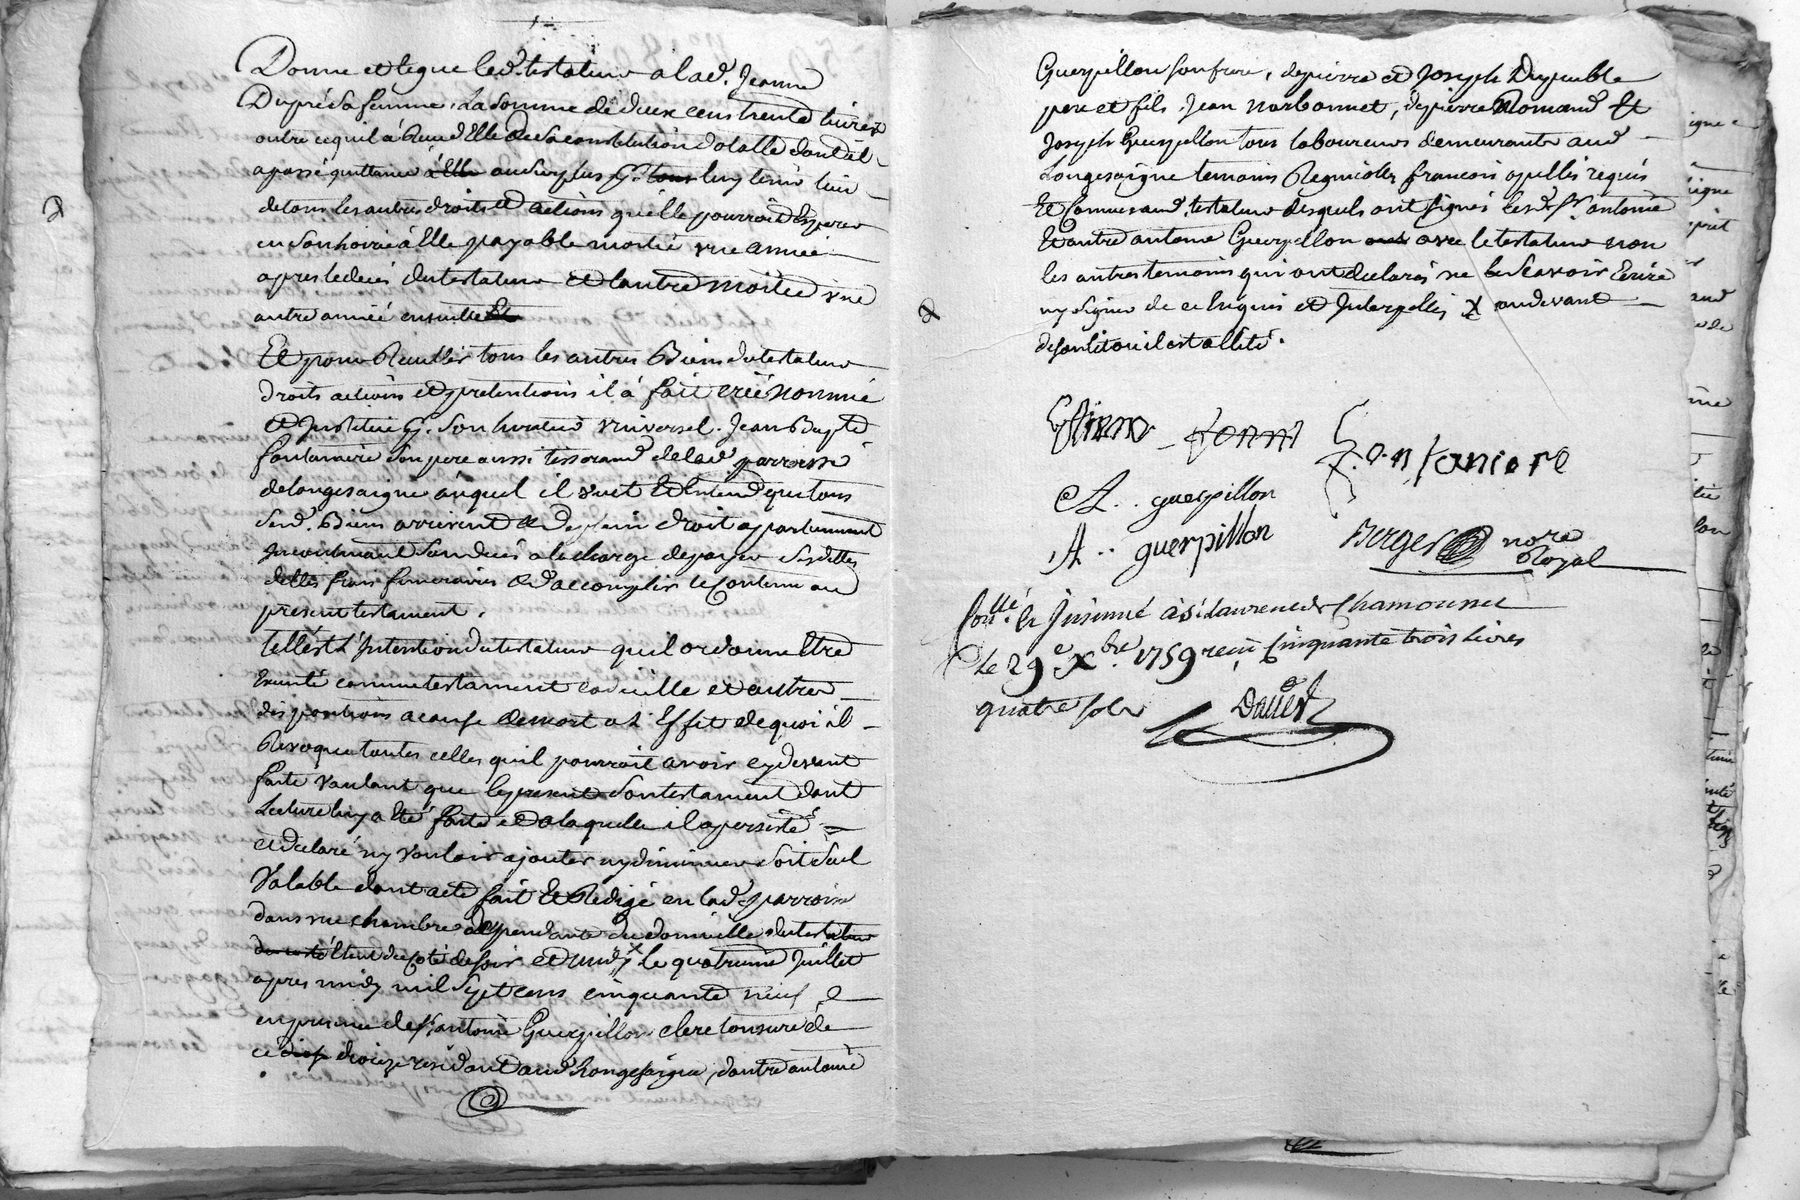 Donne et legue led. testateur a lad. Jeanne
Dupré sa femme, La somme de deux cens trente livres
outre ce quil à Receu d'Elle de sa constitution dotalle dont il
a passé quittance à Elle au surplus luy tenir lieu
de tous les autres droits et actions qu'elle pourroit Esperer
en son hoirie à Elle payable moitié une année
apres le deces du testateur et l'autre moitié une
autre année ensuitte Et
Et pour Remplir tous les autres Biens du testateur
droits actions et pretentions il à fait créé nommé
et Institué son heritier universel Jean Bapte
fontaniere son pere aussi tisserand de lad. parroisse
de longesaigne auquel il veut Et Entend que tous
sesd. Biens arrivent et de plein droit appartiennent
Incontinant son deces a la charge de payer ses dettes
frais funeraires et d'accomplir le contenu au
present testament.
telle est L'Intention du testateur qu'il ordonne Etre
Executé comme testament codicille et autres
dispositions a cause de mort a L'Effet de quoi il
Revoque toutes celles qu'il pourroit avoir cy devant
faite voulant que le present son testament dont
Lecture luy a Eté faite et a laquelle il a persisté
et declaré ny vouloir ajouter ny diminuer soit seul
Valable dont acte fait Et Redigé en lad. parroisse
dans une chambre dependante du domicille du testateur
du coté de soir et midy X le quatrieme Juillet
apres midy mil sept cens cinquante neuf
en presence de sr. antoine Guerpillon clerc tonsuré de
ce dioceze residant aud. Longesaigne, d'autre antoine
Guerpillon son frere, de pierre et Joseph Dupeuble
pere et fils Jean narbonnet, de pierre Romand Et
Joseph Guerpillon tous laboureurs demeurants aud.
Longesaigne temoins Regnicoles francois apellés requis
Et connus aud. testateur desquels ont signé lesd. sr. antoine
Et autre antoine Guerpillon avec le testateur non
les autres temoins qui ont declarés ne Scavoir Ecrire
ny signer de ce Enquis et Interpellés X au devant
de son lit ou il est allité.
fontaniere
A.. guerpillon
A.. guerpillon
Berger nore
Royal
Conllé & Insinué à St Laurent de Chamousset
le 29e Xbre 1759 reçu Cinquante trois livres
quatre sols